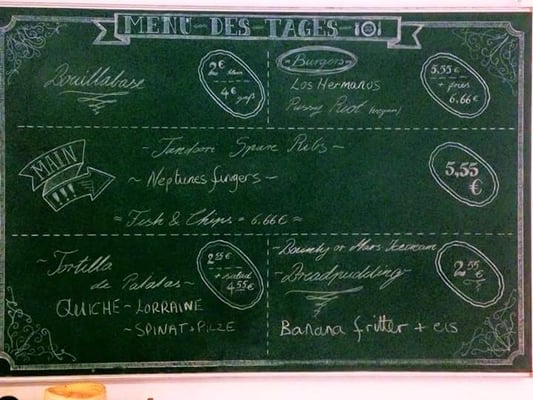 MENU - DES - TAGES
Bouillabase
2€
klein
4€ groß
Burgers
Los Hermanos
Pussy Riot (vegan)
5,55 €
+ fries
6,66 €
MAIN
!!!
~ Tandoori Spare Ribs ~
~ Neptunes fingers ~
= Fish & Chips = 6.66€ =
5,55
€
~ Tortilla
de Patatas ~
2 55 €
+ salad
4 55 €
QUICHE ~ LORRAINE
~ SPINAT + PILZE
~ Bounty or Mars Icecream
~ Breadpudding ~
2 55
€
Banana fritter + eis